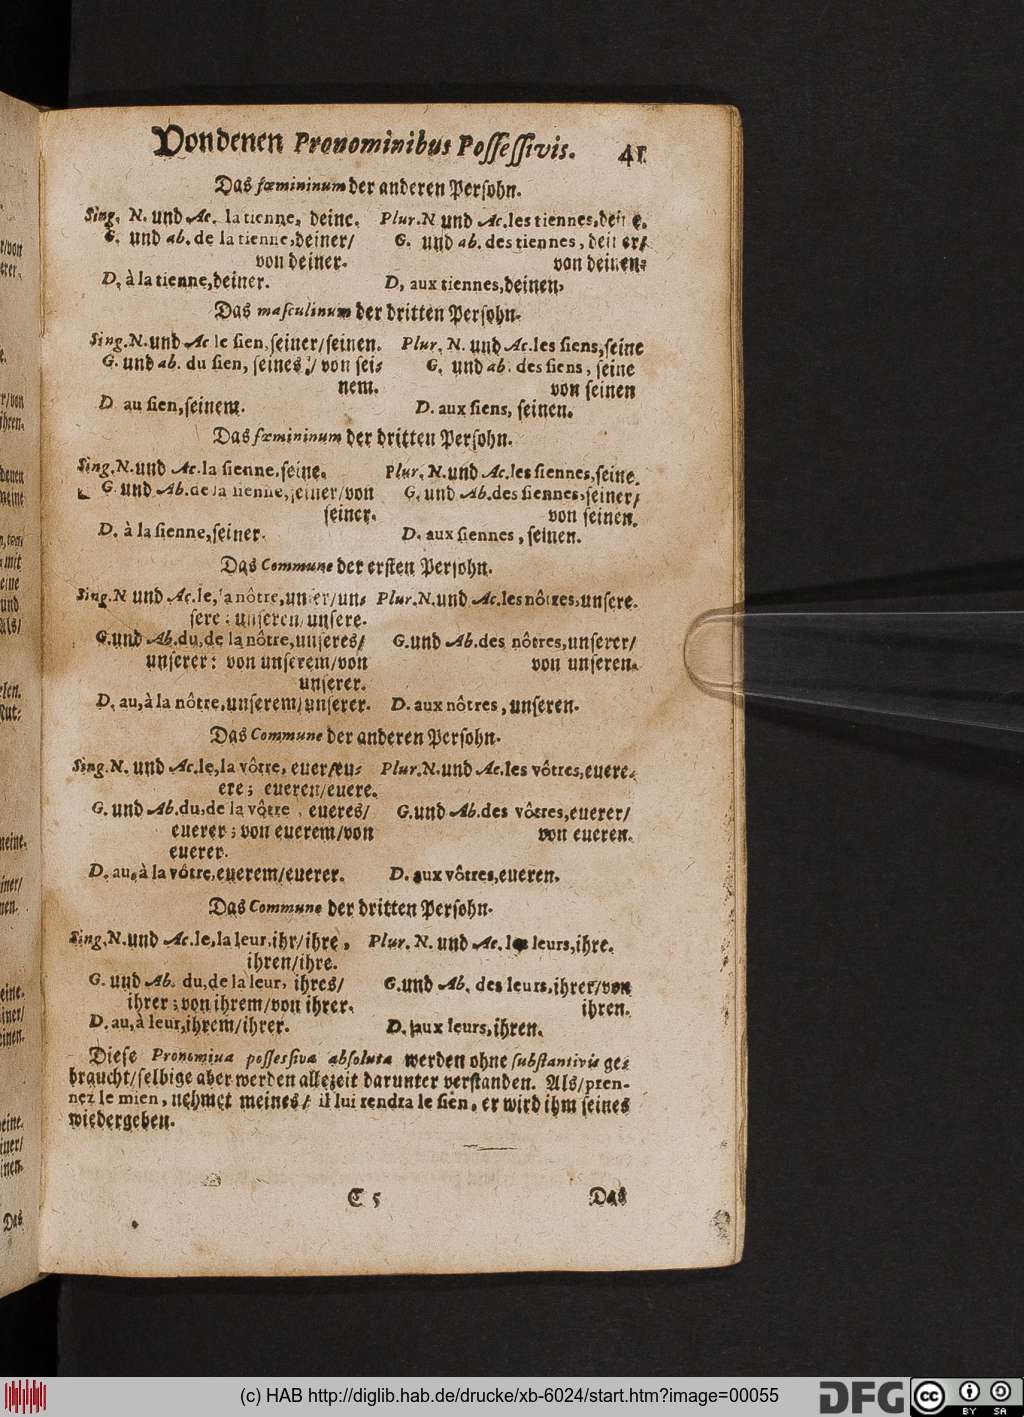 Von denen Pronominibus Possessivis. 41
Das fœmininum der anderen Persohn.
Sing. N. und Ac. la tienne, deine. Plur. N und Ac. les tiennes, deine.
G. und ab. de la tienne, deiner/ G. und ab. des tiennes, deiner/
von deiner. von deinen.
D. à la tienne, deiner. D. aux tiennes, deinen.
Das masculinum der dritten Persohn.
Sing. N. und Ac le sien, seiner/seinen. Plur. N. und Ac. les siens, seine
G. und ab. du sien, seines/ von sei= G. und ab. des siens, seine
nem. von seinen
D. au sien, seinem. D. aux siens, seinen.
Das fœmininum der dritten Persohn.
Sing. N. und Ac. la sienne, seine. Plur. N. und Ac. les siennes, seine.
G. und Ab. de la sienne, seiner/von G. und Ab. des siennes, seiner/
seiner. von seinen.
D. à la sienne, seiner. D. aux siennes, seinen.
Das Commune der ersten Persohn.
Sing. N und Ac. le, la nôtre, unser/un= Plur. N. und Ac. les nôtres, unsere.
sere: unseren/unsere.
G. und Ab. du, de la nôtre, unseres/ G. und Ab. des nôtres, unserer/
unserer: von unserem/von von unseren.
unserer.
D. au, à la nôtre, unserem/unserer. D. aux nôtres, unseren.
Das Commune der anderen Persohn.
Sing. N. und Ac. le, la vôtre, euer/eu= Plur. N. und Ac. les vôtres, euere.
ere; eueren/euere.
G. und Ab. du, de la vôtre, eueres/ G. und Ab. des vôtres, euerer/
euerer; von euerem/von von eueren.
euerer.
D. au, à la vôtre, euerem/euerer. D. aux vôtres, eueren.
Das Commune der dritten Persohn.
Sing. N. und Ac. le, la leur, ihr/ihre, Plur. N. und Ac. les leurs, ihre.
ihren/ihre.
G. und Ab. du, de la leur, ihres/ G. und Ab. des leurs, ihrer/von
ihrer; von ihrem/von ihrer. ihren.
D. au, à leur, ihrem/ihrer. D. aux leurs, ihren.
Diese Pronomina possessiva absoluta werden ohne substantivis ge=
braucht/selbige aber werden allezeit darunter verstanden. Als/pren-
nez le mien, nehmet meines/ il lui rendra le sien, er wird ihm seines
wiedergeben.
C 5 Das
(c) HAB http://diglib.hab.de/drucke/xb-6024/start.htm?image=00055
DFG
cc BY SA